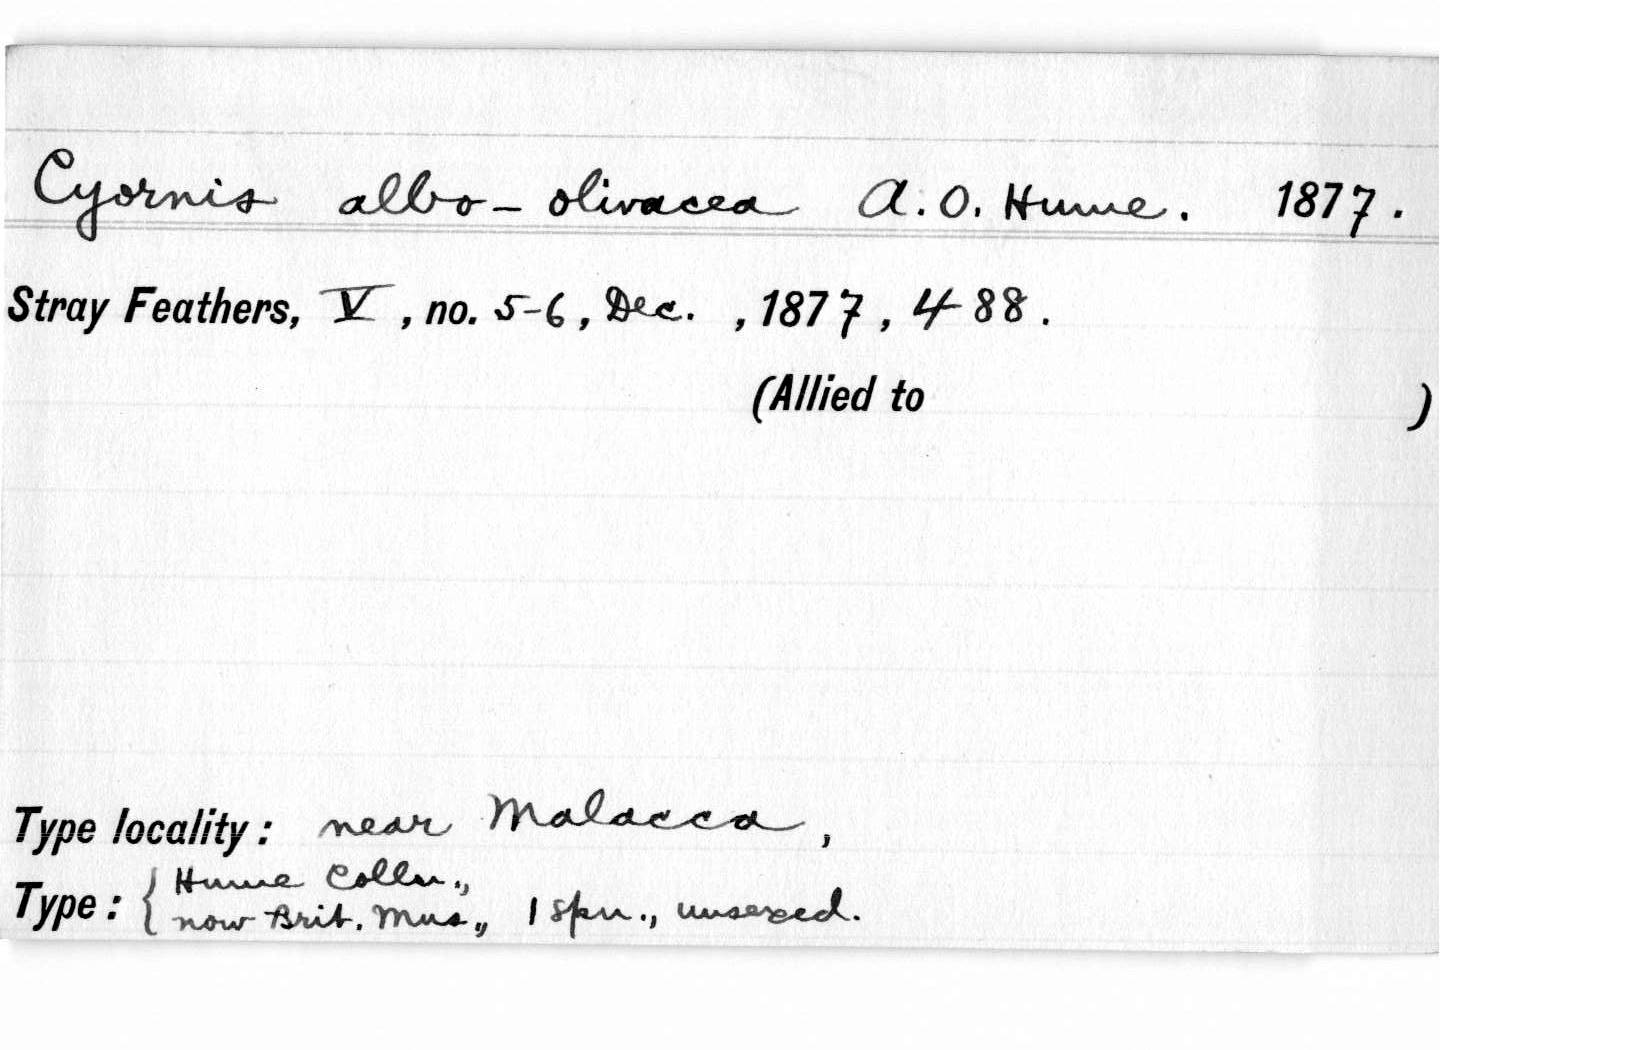 Cyornis albo-olivacea A. O. Hume. 1877.
Stray Feathers, V, no. 5-6, Dec. , 1877, 488.
(Allied to )
Type locality: near Malacca,
Type: { Hume Colln.,
now Brit. Mus., 1 spn., unsexed.